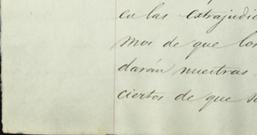 en las extrajudic
mos de que los
darán nuestras
ciertos de que s